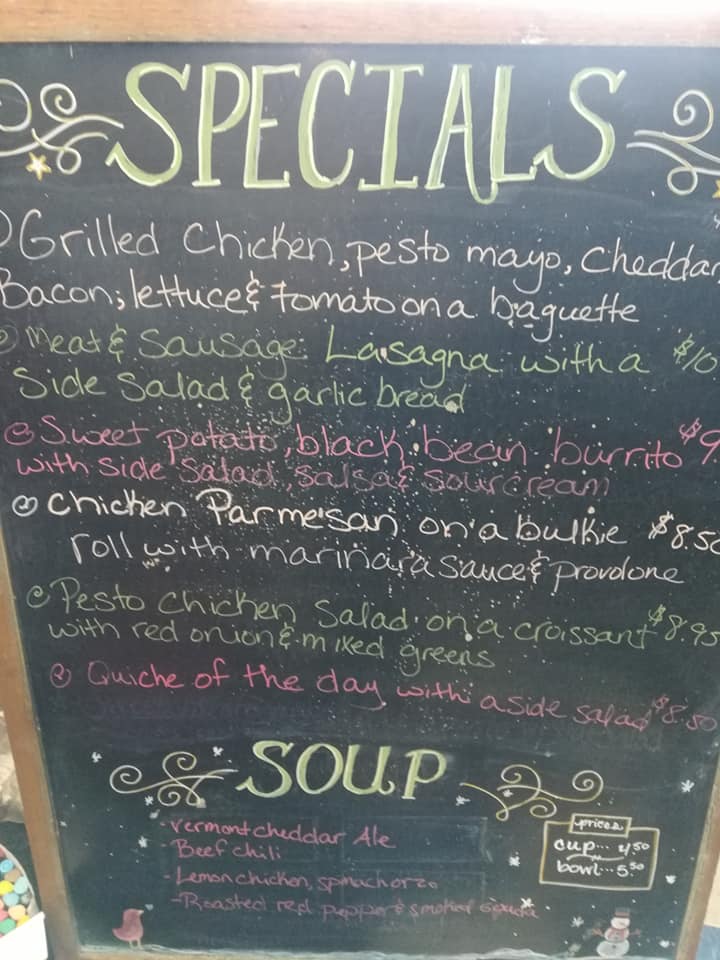 SPECIALS
Grilled Chicken, pesto mayo, cheddar
Bacon, lettuce & tomato on a baguette
Meat & Sausage Lasagna with a $10
Side Salad & garlic bread
Sweet potato, black bean burrito $9.
with side salad, salsa & sour cream
Chicken Parmesan on a bulkie $8.50
roll with marinara sauce & provolone
Pesto Chicken Salad on a croissant $8.95
with red onion & mixed greens
Quiche of the day with a side salad $8.50
SOUP
-Vermont cheddar Ale
-Beef chili
-Lemon chicken, spinach orzo
-Roasted red pepper & smoked gouda
prices
cup... 4.50
bowl... 5.50